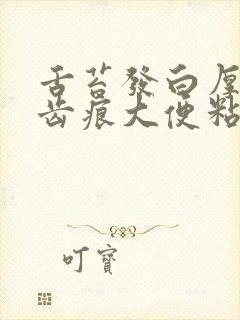 舌苔發白厚
齿痕大便粘
叮寶